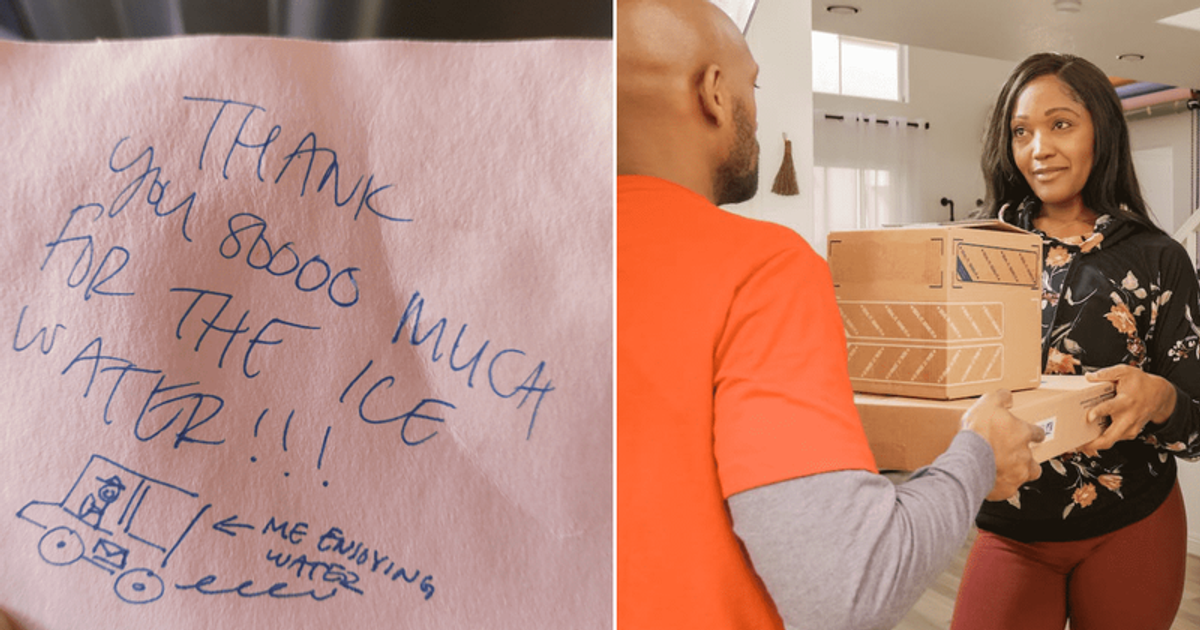 THANK
you 80000 MUCH
FOR THE ICE
WATER!!!
← ME ENJOYING
WATER